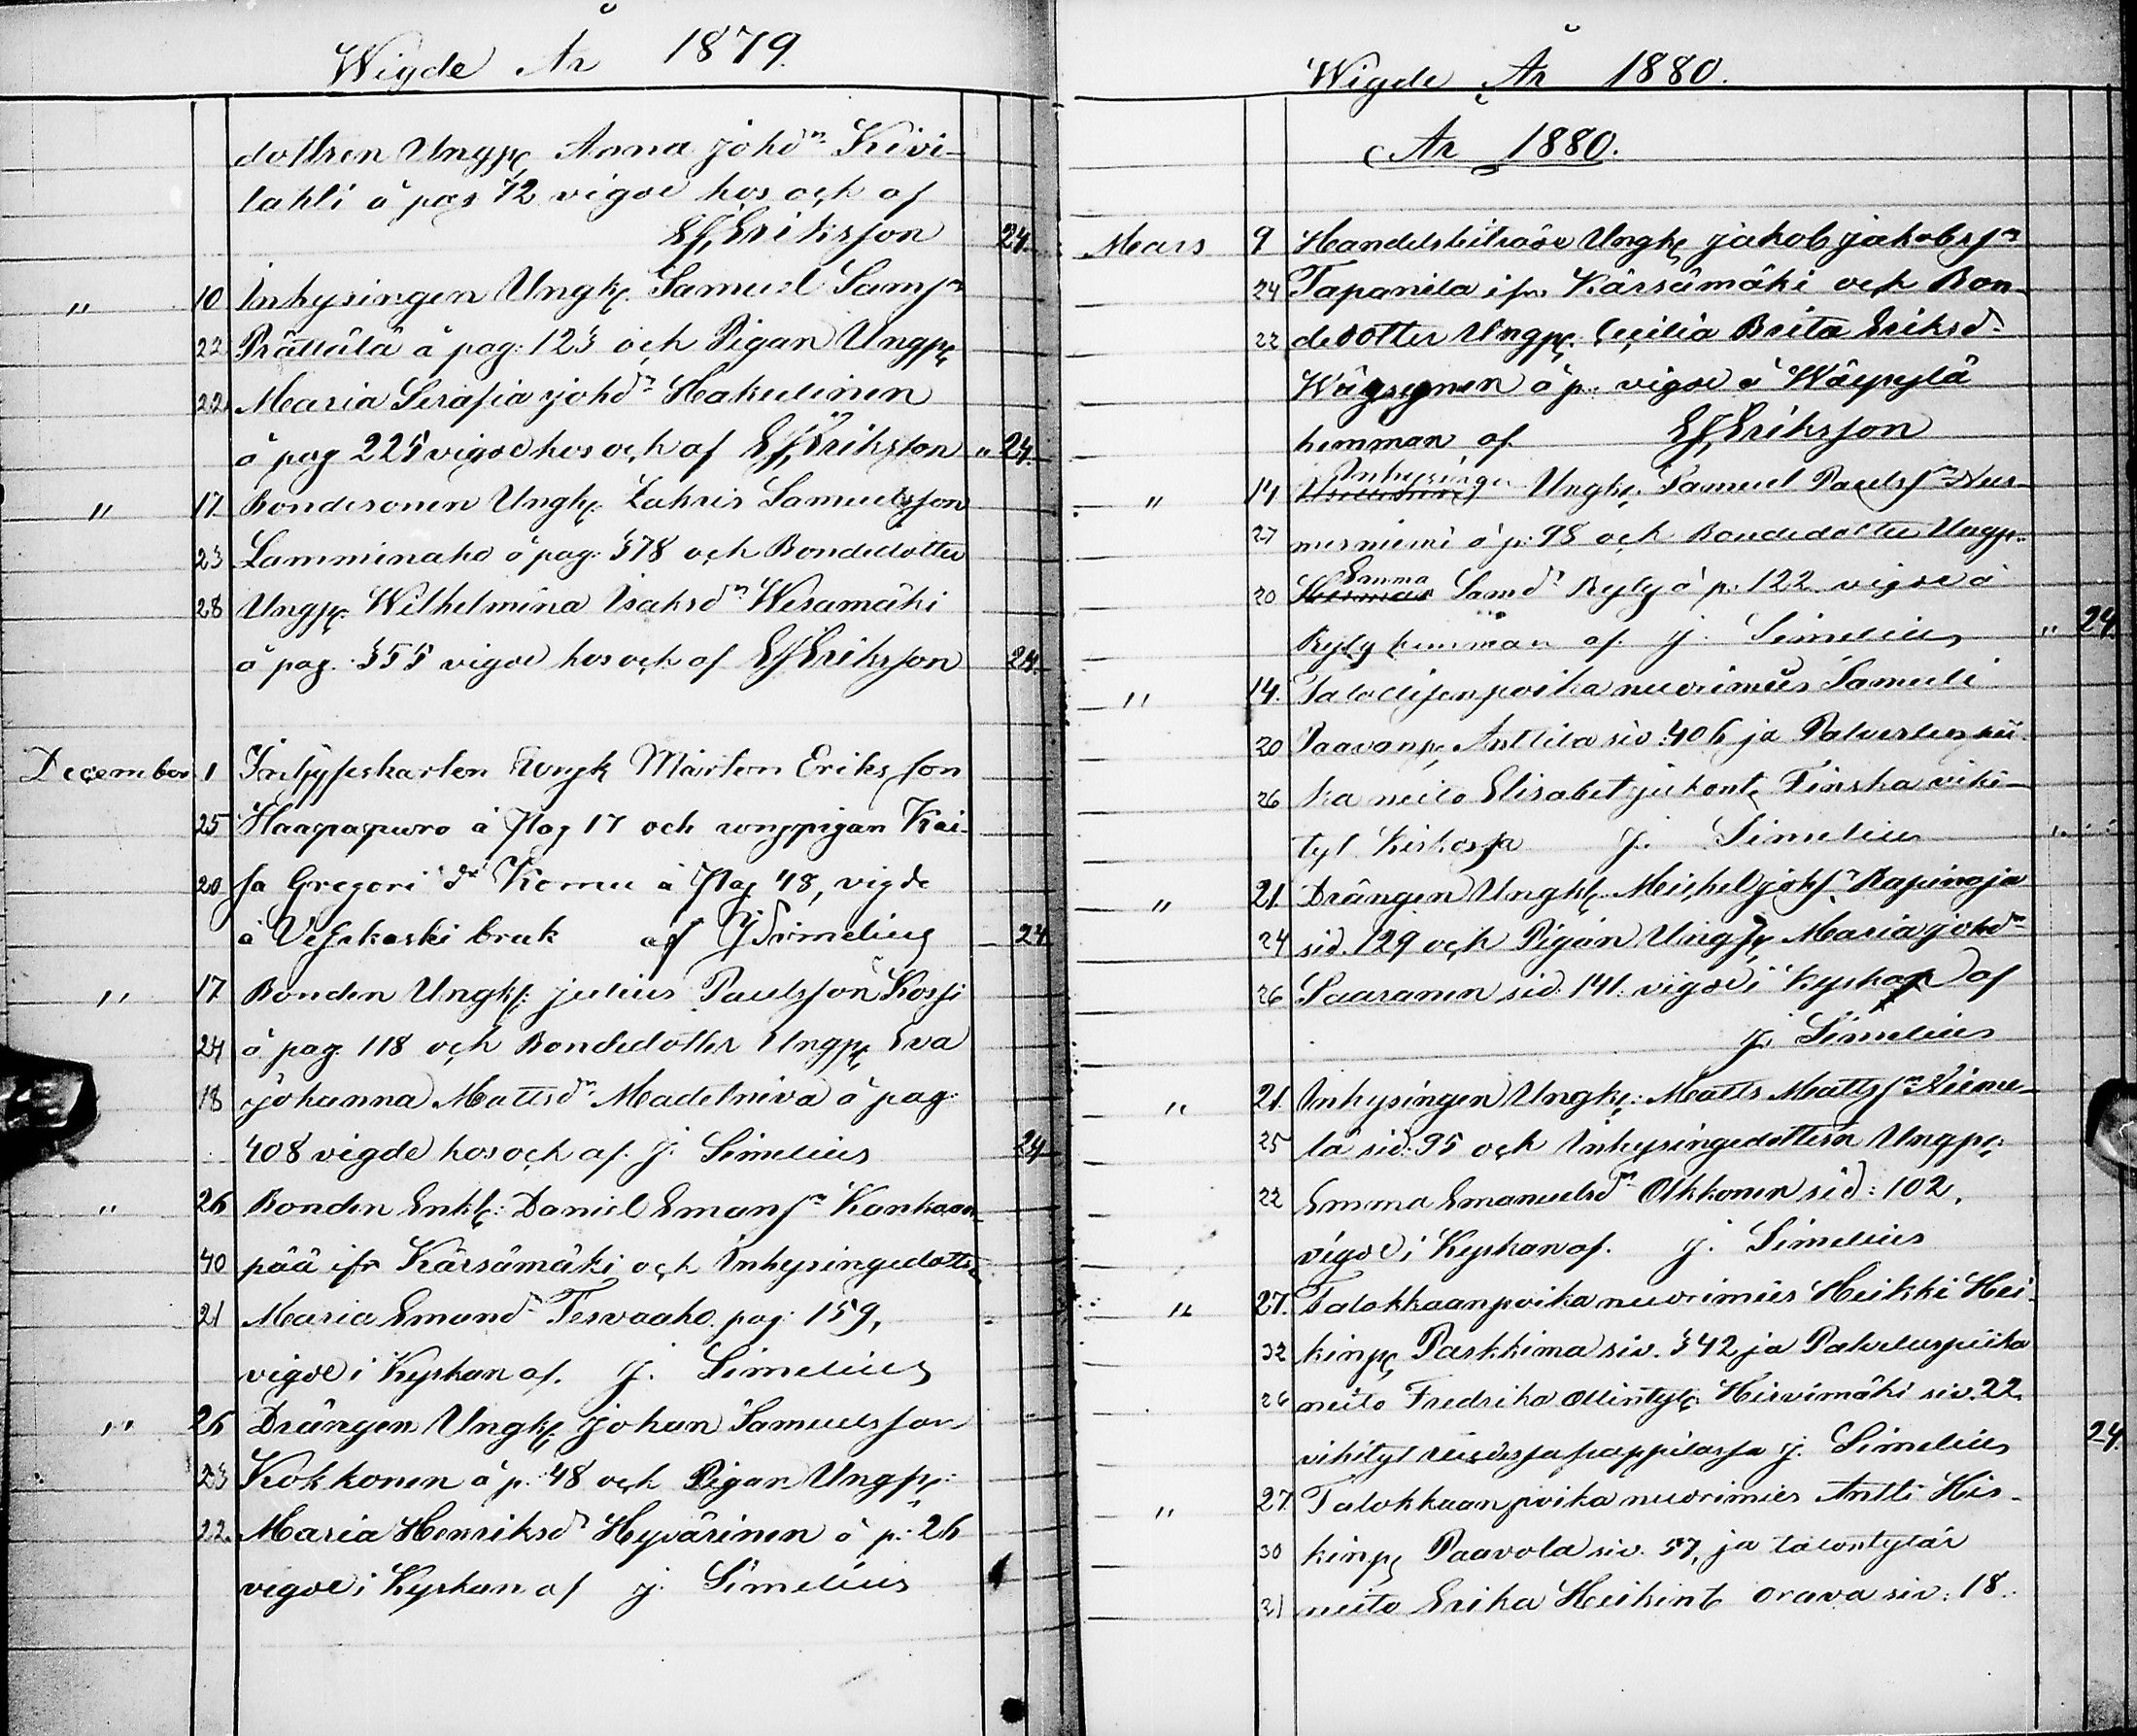 Wigde År 1879.
dottren Ungpç Anna Johdr Kivi-
lahti å pag 72 vigde hos och af
EJ,Eriksson 24.
" 10 Inhysingen Ungkç Samuel Samsn
22 Prättälä å pag: 123 och Pigan Ungpç
22. Maria Serafia Johdr Hakulinen
å pag 225 vigde hos och af EJ,Eriksson " 24.
" 17 Bondesonen Ungkç Zakris Samuelsson
23 Lamminaho å pag: 378 och Bondedotter
28 Ungpç. Wilhelmina Isaksdr Wesamäki
å pag. 355 vigde hos och af EJ Eriksson 24.
December 1 Inhyseskarlen Ungk Mårten Eriksson
25 Haapapuro å Pag 17 och ungpigan Kai-
20 sa Gregoridr Komu å Pag 48, vigde
å Veskoski bruk af J Simelius 24
" 17 Bonden Ungkç: Julius Paulsson Kossi
24 å pag. 118 och Bondedotter Ungpç Eva
18 Johanna Mattsdr Madetniva å pag:
408 vigde hos och af. J. Simelius 24
" 26 Bonden Enkç: Daniel Emansn Kankaan-
40 pää ifr Kärsämäki och Inhysingedottr
21 Maria Emandr Tervaaho pag: 159,
vigde i Kyrkan af. J. Simelius
" 26 Drängen Ungkç Johan Samuelsson
23 Kokkonen å p. 48 och Pigan Ungpç:
22. Maria Henriksdr Hyvärinen å p: 26
vigde i Kyrkan af J. Simelius
Wigde År 1880.
År 1880.
Mars 9 Handelsbiträde Ungkç Jakob Jakobsn
24 Tapanila ifrn Kärsämäki och Bon-
22 dedotter Ungpç. Cecilia Brita Eriksdr
Wäyrynen å p: vigde å Wäyrylä
hemman af EJ,Eriksson
" 14 Inhysinge Ungkç. Samuel Paulsn Nur-
27 mesniemi å p: 98 och Bondedotter Ungp.
20 Sanna Samdr Ryly å p. 122 vigde å
Ryly hemman af J. Simelius " 24.
" 14. Talollisenpoika nuorimies Samuli
20 Paavonpç Anttila siv: 406 ja Palveluspii-
26 ka neito Elisabet Juhont. Finska vihi-
tyt Kirkossa J. Simelius
" 21. Drängen Ungkç Michel Johsn Rapinoja
24 sid. 129 och Pigan Ungpç Maria Johdr
26 Saaranen sid: 141. vigde i Kyrkan af
J. Simelius
" 21. Inhysingen Ungkç: Matts Mattssn Nieme-
25 lä sid: 95 och Inhysingedottern Ungpç:
22 Emma Emanuelsdr Okkonen sid: 102,
vigde i Kyrkan af. J. Simelius
" 27. Talokkaanpoika nuorimies Heikki Hei-
32 kinpç Parkkima siv. 342 ja Palveluspiika
26 neito Fredrika Ollintytç Hirvimäki siv. 22.
vihityt pappilassa J. Simelius 24.
" 27. Talokkaanpoika nuorimies Antti His-
30 kinpç Paavola siv. 57, ja talontytär
21 neito Erika Heikint orava siv: 18.